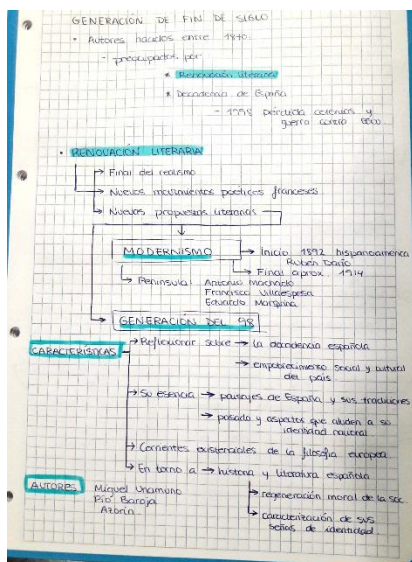 GENERACIÓN DE FIN DE SIGLO
• Autores nacidos entre 1870.
- preocupados por
* Renovación literaria
* Decadencia de España
- 1998 pérdida colonias y
guerra contra EEUU.
• RENOVACIÓN LITERARIA
→ Final del realismo
→ Nuevos movimientos poéticos franceses
→ Nuevas propuestas literarias
MODERNISMO → Inicio 1892 hispanoamerica
Rubén Darío
→ Final aprox. 1914
→ Peninsula: Antonio Machado
Francisco Villaespesa
Eduardo Marquina
→ GENERACIÓN DEL 98
CARACTERÍSTICAS → Reflexionar sobre → la decadencia española
→ empobrecimiento social y cultural
del país
→ Su esencia → paisajes de España y sus tradiciones
→ pasado y aspectos que aluden a su
identidad
→ Corrientes existenciales de la filosofía europea
→ En torno a → historia y literatura española
→ regeneración moral de la soc.
→ caracterización de sus
señas de identidad.
AUTORES Miguel Unamuno
Pío Baroja
Azorín